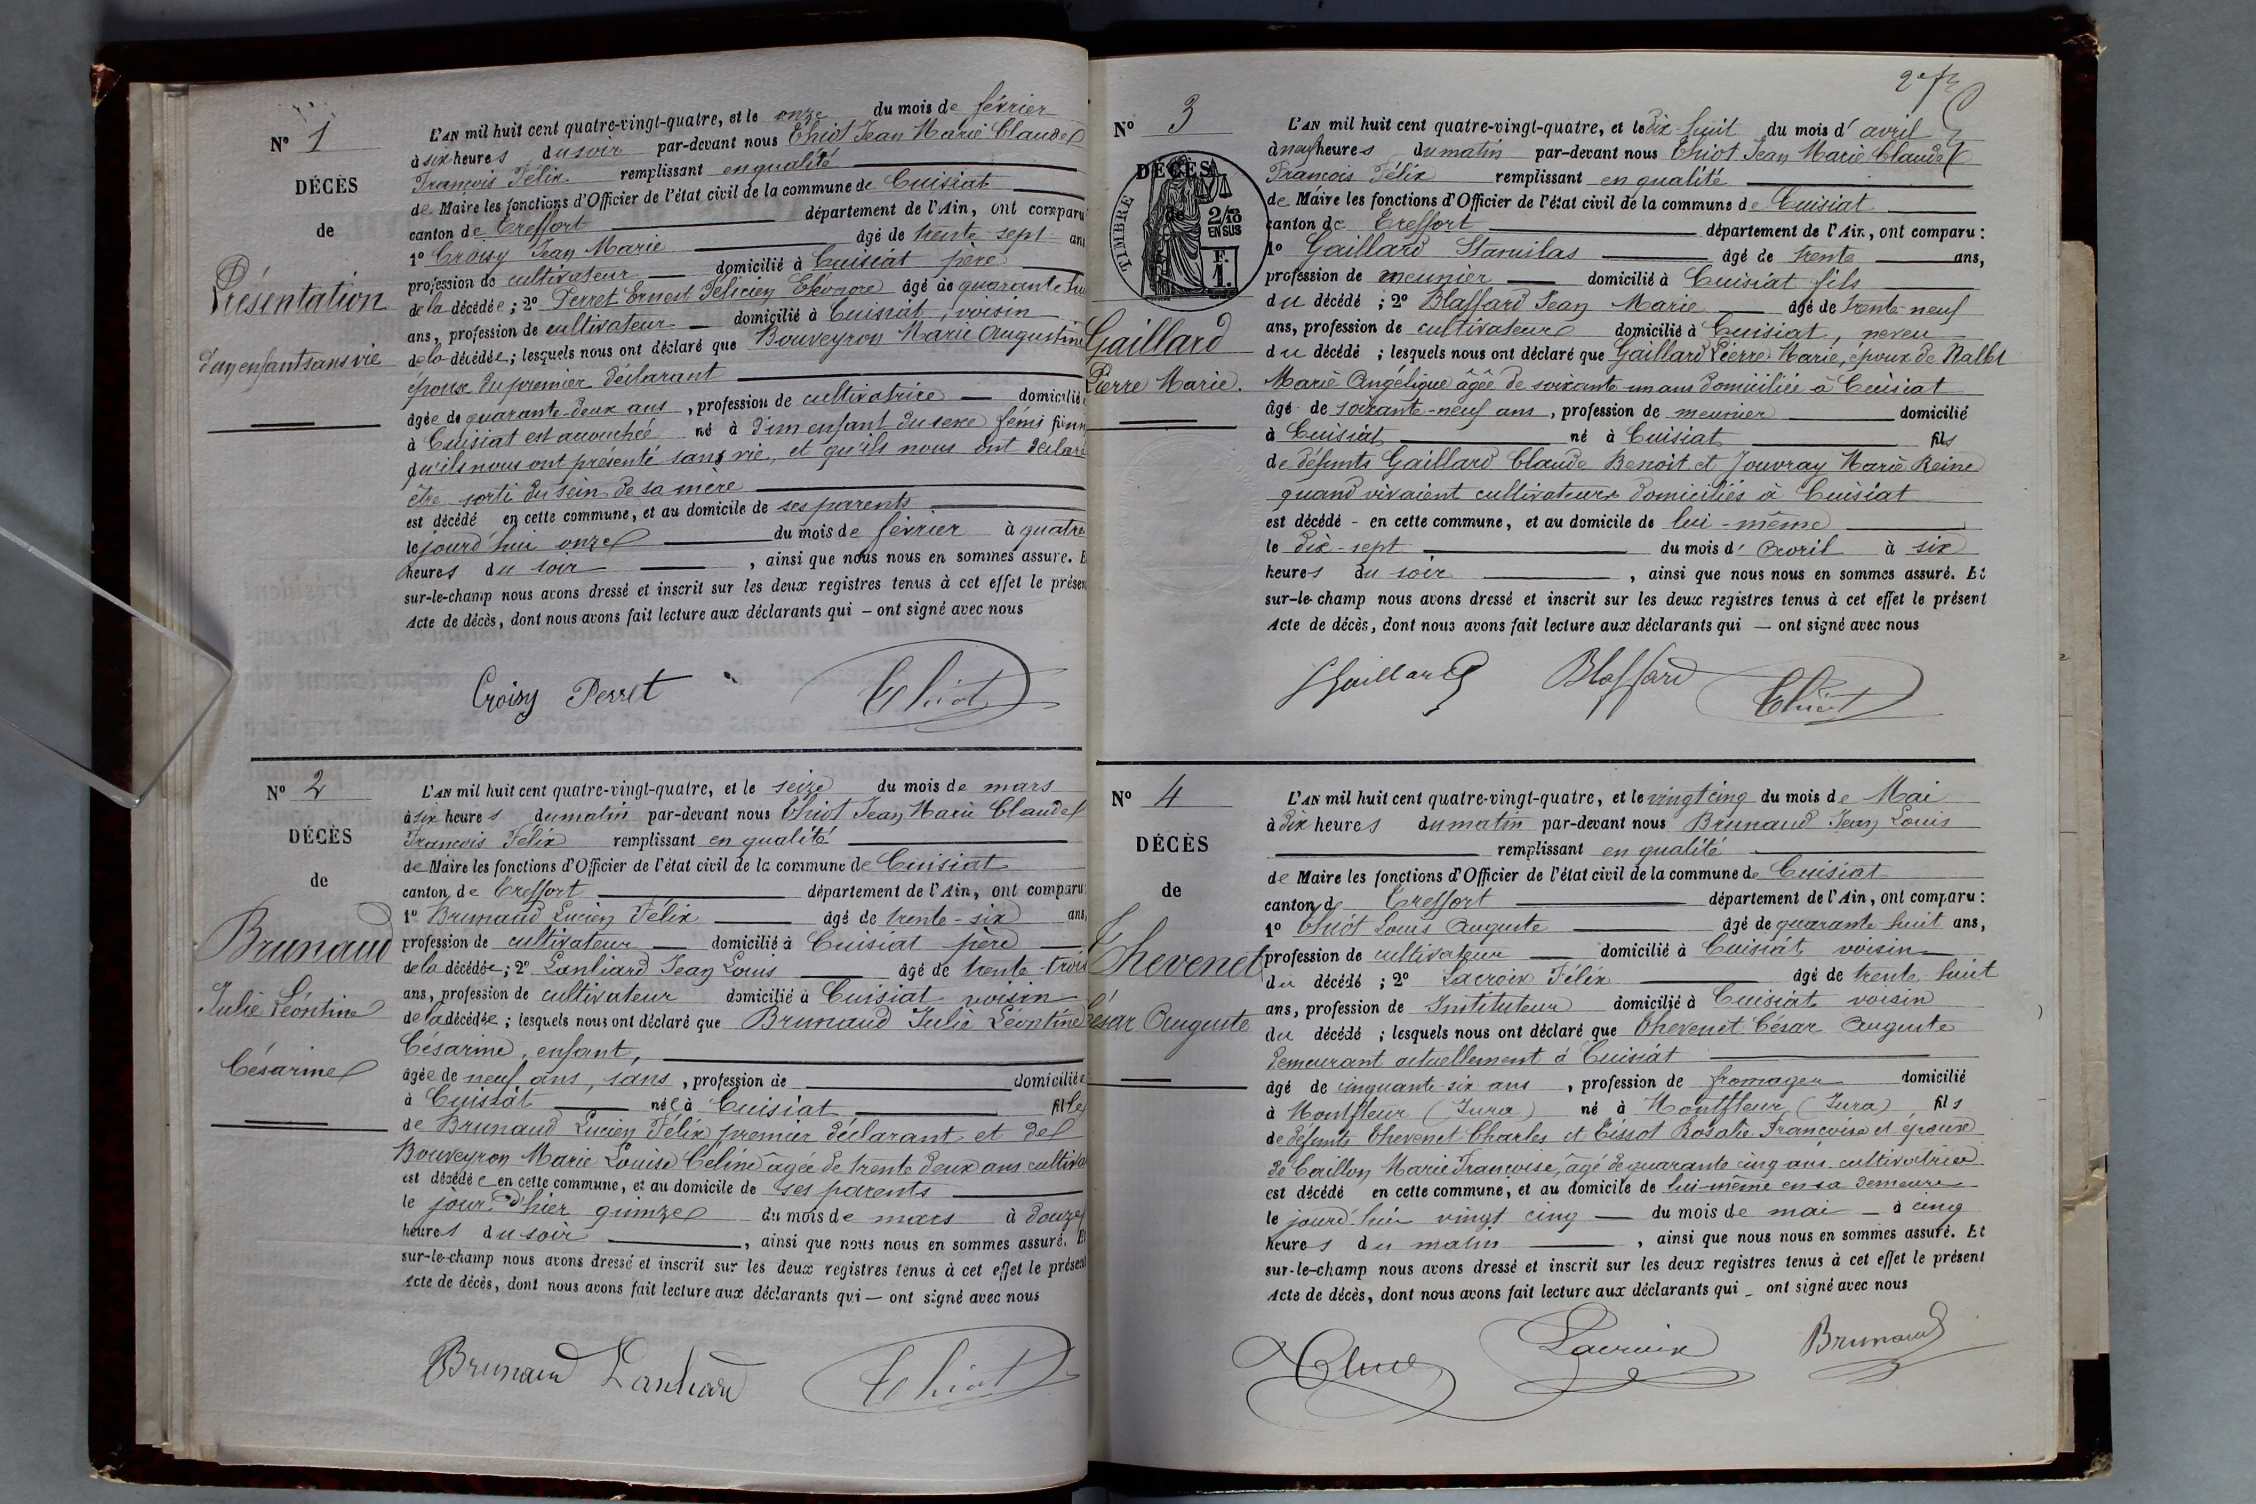 N° 1
DÉCÈS
de
Présentation
d'un enfant sans vie
L'AN mil huit cent quatre-vingt-quatre, et le onze du mois de février
à six heures du soir par-devant nous Thiot Jean Marie Claude
François Félix remplissant en qualité
de Maire les fonctions d'Officier de l'état civil de la commune de Cuisiat
canton de Treffort département de l'Ain, ont comparu
1° Croisy Jean Marie âgé de trente-sept ans
profession de cultivateur domicilié à Cuisiat père
de la décédée ; 2° Perret Ernest Félicien âgé de quarante
ans, profession de cultivateur domicilié à Cuisiat, voisin
de la décédée ; lesquels nous ont déclaré que Bouveyron Marie Augustine
épouse du premier déclarant
âgée de quarante-deux ans, profession de cultivatrice domicilié
à Cuisiat est accouchée né à d'un enfant du sexe féminin
qu'ils nous ont présenté sans vie, et qu'ils nous ont déclaré
être sorti du sein de sa mère
est décédé en cette commune, et au domicile de ses parents
le jourd'hui onze du mois de février à quatre
heures du soir , ainsi que nous nous en sommes assuré. E
sur-le-champ nous avons dressé et inscrit sur les deux registres tenus à cet effet le présen
Acte de décès, dont nous avons fait lecture aux déclarants qui — ont signé avec nous
Croisy Perret Thiot
N° 2
DÉCÈS
de
Brunaud
Julie Léontine
Césarine
L'AN mil huit cent quatre-vingt-quatre, et le seize du mois de mars
à six heures du matin par-devant nous Thiot Jean Marie Claude
François Félix remplissant en qualité
de Maire les fonctions d'Officier de l'état civil de la commune de Cuisiat
canton de Treffort département de l'Ain, ont comparu:
1° Brunaud Lucien Félix âgé de trente-six ans,
profession de cultivateur domicilié à Cuisiat père
de la décédée ; 2° Lanliard Jean Louis âgé de trente-trois
ans, profession de cultivateur domicilié à Cuisiat voisin
de la décédée ; lesquels nous ont déclaré que Brunaud Julie Léontine
Césarine, enfant,
âgée de neuf ans, sans , profession de domiciliée
à Cuisiat née à Cuisiat fille
de Brunaud Lucien Félix premier déclarant et de
Bouveyron Marie Louise Céline âgée de trente deux ans
est décédée en cette commune, et au domicile de ses parents
le jour d'hier quinze du mois de mars à douze
heures du soir , ainsi que nous nous en sommes assuré. Et
sur-le-champ nous avons dressé et inscrit sur les deux registres tenus à cet effet le présent
Acte de décès, dont nous avons fait lecture aux déclarants qui — ont signé avec nous
Brunaud Lanliard Thiot
N° 3
DÉCÈS
de
TIMBRE
2/10 EN SUS
F. 1.
Gaillard
Pierre Marie.
L'AN mil huit cent quatre-vingt-quatre, et le dix-huit du mois d'avril
à neuf heures du matin par-devant nous Thiot Jean Marie Claude
François Félix remplissant en qualité
de Maire les fonctions d'Officier de l'état civil de la commune de Cuisiat
canton de Treffort département de l'Ain, ont comparu :
1° Gaillard Stanislas âgé de trente ans,
profession de meunier domicilié à Cuisiat fils
du décédé ; 2° Blaffard Jean Marie âgé de trente-neuf
ans, profession de cultivateur domicilié à Cuisiat, neveu
du décédé ; lesquels nous ont déclaré que Gaillard Pierre Marie, époux de
Marie Angélique âgée de soixante un ans domiciliée à Cuisiat
âgé de soixante-neuf ans, profession de meunier domicilié
à Cuisiat né à Cuisiat fils
de défunts Gaillard Claude Benoit et Jouvray Marie Reine
quand vivaient cultivateurs domiciliés à Cuisiat
est décédé - en cette commune, et au domicile de lui-même
le dix-sept du mois d'Avril à six
heures du soir , ainsi que nous nous en sommes assuré. Et
sur-le-champ nous avons dressé et inscrit sur les deux registres tenus à cet effet le présent
Acte de décès, dont nous avons fait lecture aux déclarants qui — ont signé avec nous
Gaillard Blaffard Thiot
N° 4
DÉCÈS
de
Thevenet
César Auguste
L'AN mil huit cent quatre-vingt-quatre, et le vingt cinq du mois de Mai
à dix heures du matin par-devant nous Brunaud Jean Louis
remplissant en qualité
de Maire les fonctions d'Officier de l'état civil de la commune de Cuisiat
canton de Treffort département de l'Ain, ont comparu :
1° Thiot Louis Auguste âgé de quarante huit ans,
profession de cultivateur domicilié à Cuisiat voisin
du décédé ; 2° Lacroix Félix âgé de trente-huit
ans, profession de Instituteur domicilié à Cuisiat voisin
du décédé ; lesquels nous ont déclaré que Thevenet César Auguste
demeurant actuellement à Cuisiat
âgé de cinquante-six ans , profession de fromager domicilié
à Montfleur (Jura) né à Montfleur (Jura) fils
de défunts Thevenet Charles et Tissot Rosalie Françoise et époux
de Caillon Marie Françoise, âgé de quarante cinq ans cultivatrice
est décédé en cette commune, et au domicile de lui-même en sa demeure
le jourd'hui vingt cinq du mois de mai à cinq
heures du matin , ainsi que nous nous en sommes assuré. Et
sur-le-champ nous avons dressé et inscrit sur les deux registres tenus à cet effet le présent
Acte de décès, dont nous avons fait lecture aux déclarants qui - ont signé avec nous
Lacroix Brunaud